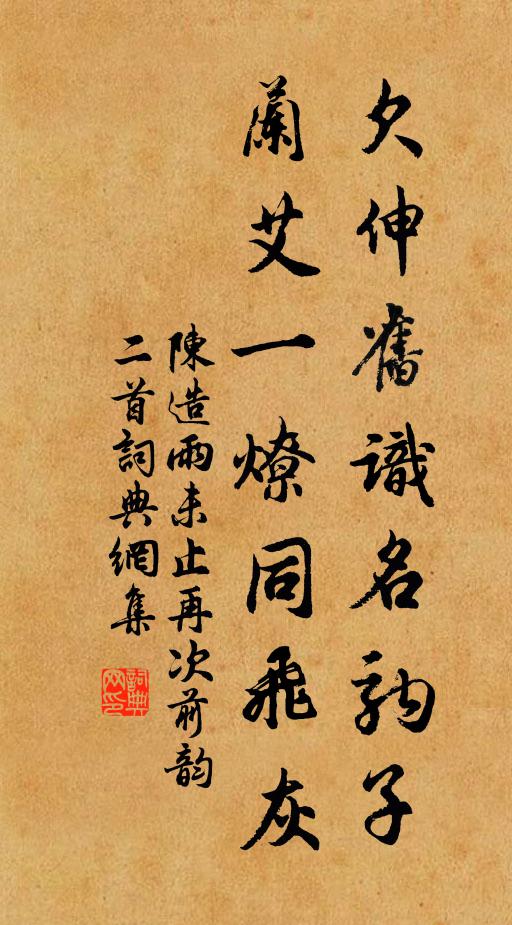 欠伸舊識名駒子
蘭艾一燎同飛灰
陳造雨未止再次前韵
二首詞典網集
詞典
网印